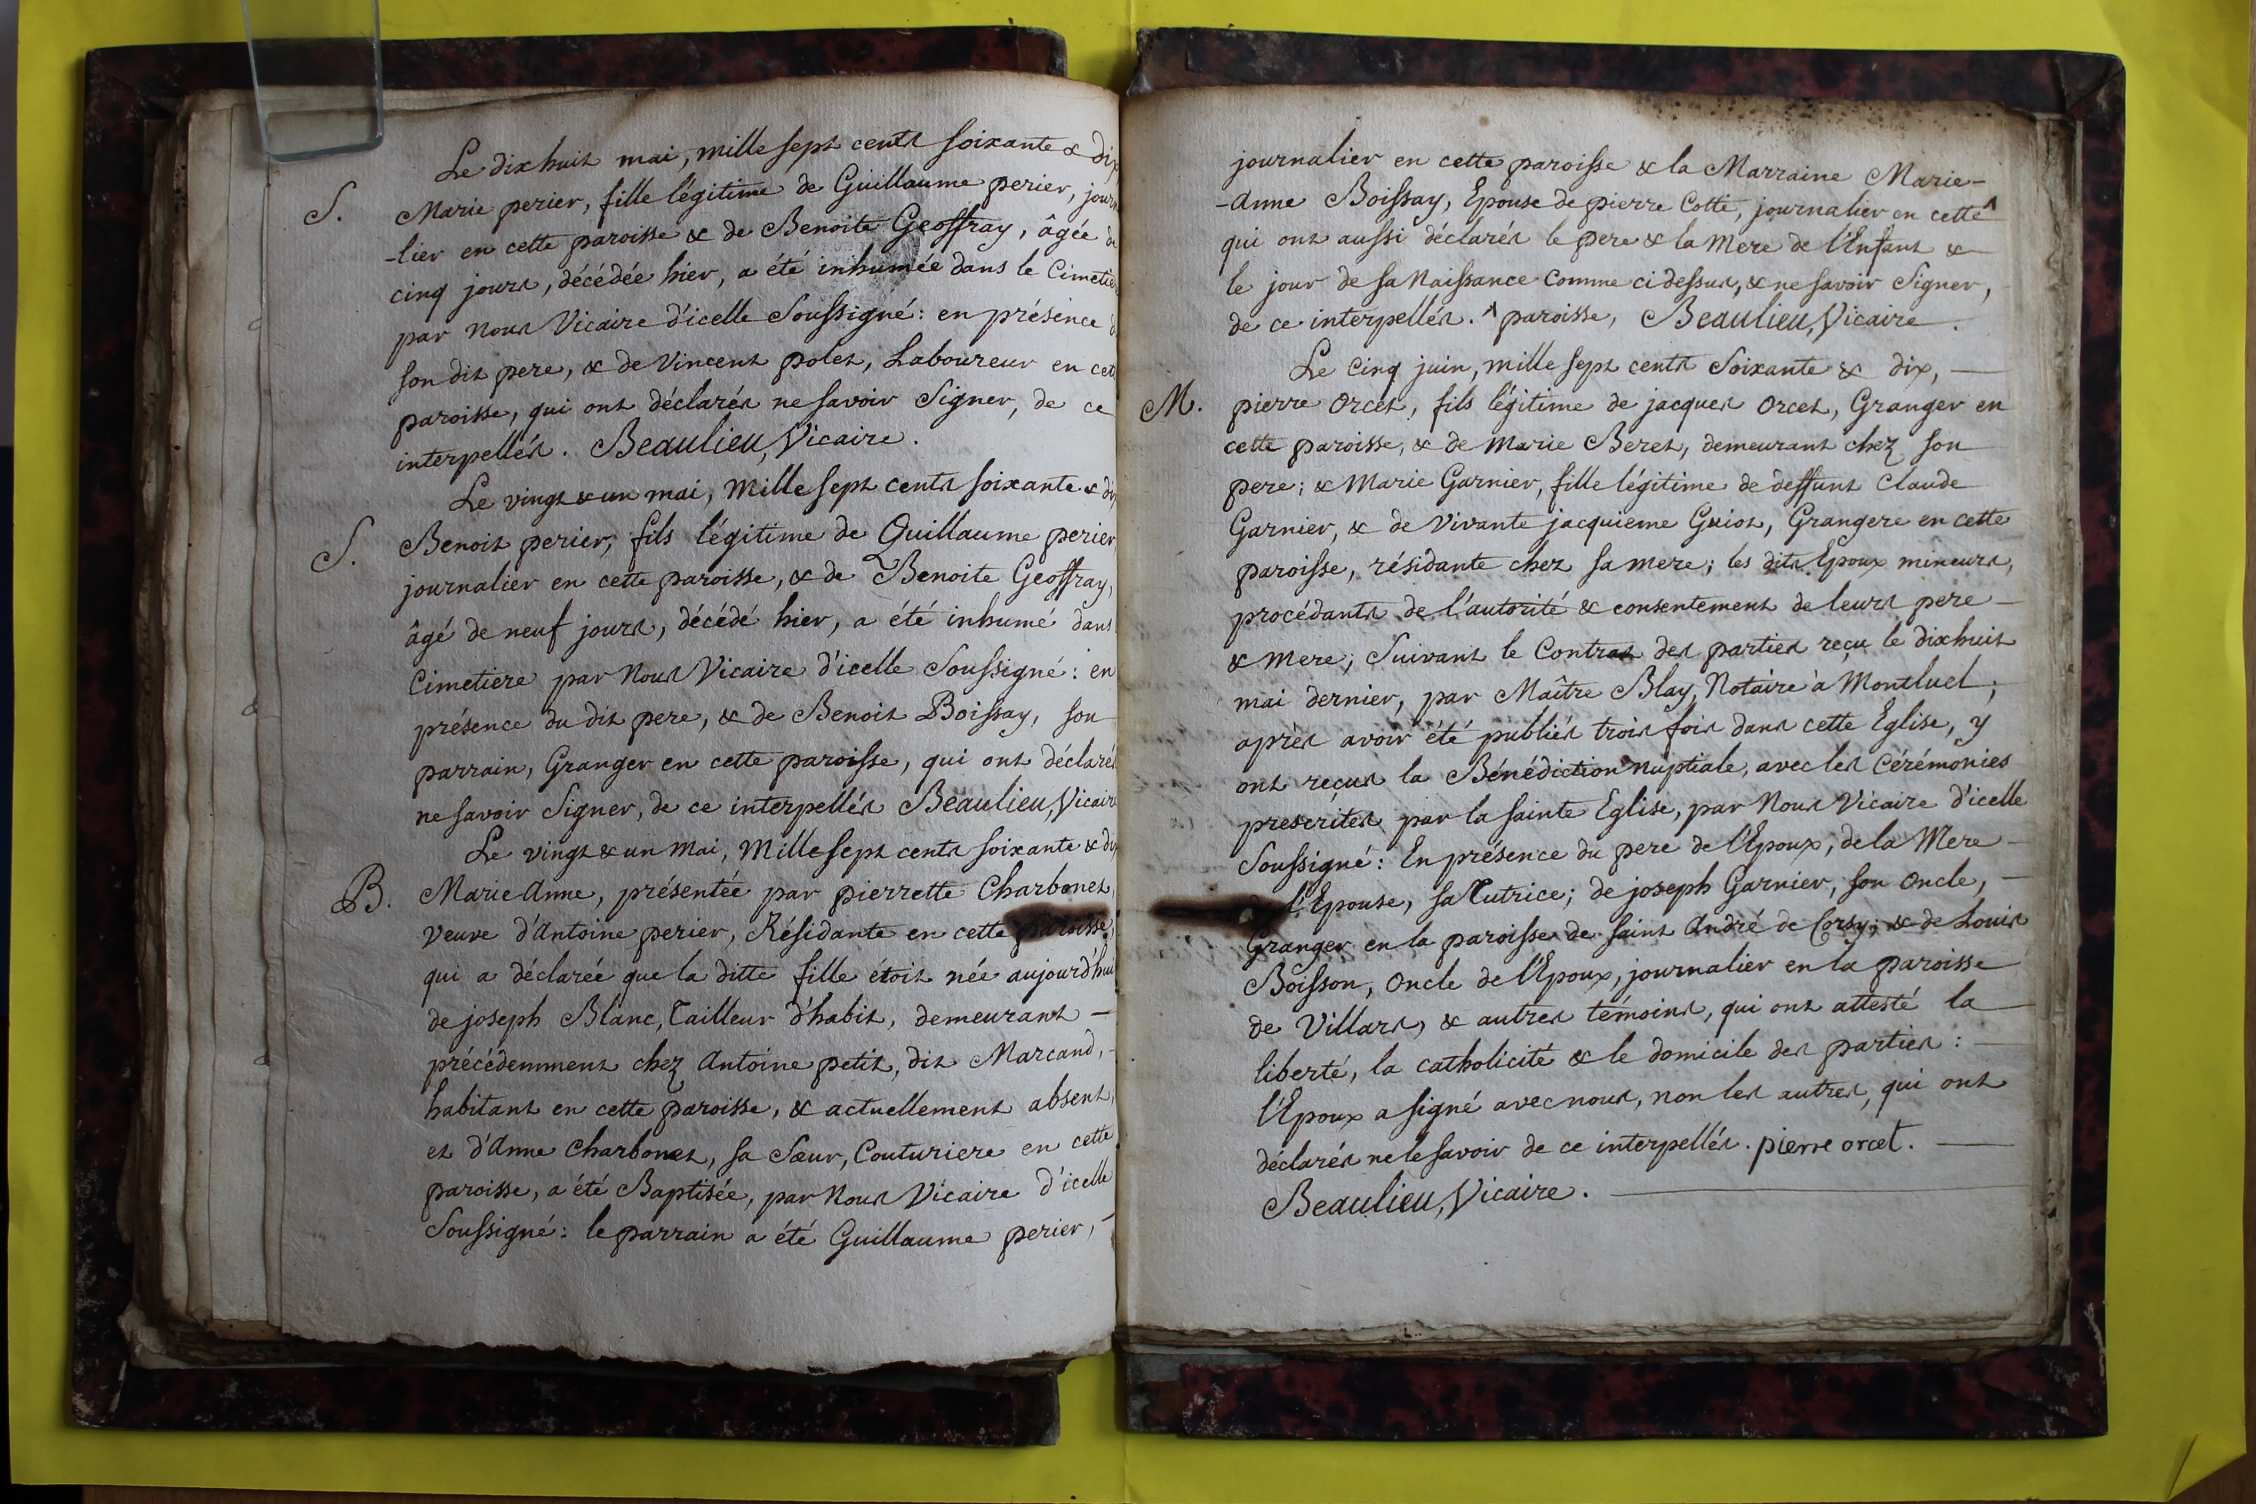 Le dix huit mai, mille sept cents soixante & dix
S. Marie perier, fille légitime de Guillaume perier, journ
-lier en cette paroisse & de Benoite Geoffray, âgée de
cinq jours, décédée hier, a été inhumée dans le Cimetiere
par Nous Vicaire d'icelle Soussigné: en présence d
son dit pere, & de Vincent polet, Laboureur en cett
paroisse, qui ont déclarés ne savoir Signer, de ce
interpellés. Beaulieu, Vicaire.
Le vingt & un mai, Mille sept cents soixante & dix
S. Benoit perier, fils légitime de Guillaume perier
journalier en cette paroisse, & de Benoite Geoffray,
âgé de neuf jours, décédé hier, a été inhumé dans
Cimetiere par Nous Vicaire d'icelle Soussigné: en
présence du dit pere, & de Benoit Boissay, son
parrain, Granger en cette paroisse, qui ont déclarés
ne savoir Signer, de ce interpellés Beaulieu, Vicaire
Le vingt & un Mai, Mille sept cents soixante & dix
B. Marie-Anne, présentée par pierrette Charbonet,
Veuve d'Antoine perier, Résidante en cette paroisse,
qui a déclarée que la ditte fille étoit née aujourd'hui
de joseph Blanc, Tailleur d'habit, demeurant —
précédemment chez Antoine petit, dit Marcand, -
habitant en cette paroisse, & actuellement absent,
et d'Anne Charbonet, sa Sœur, Couturiere en cette
paroisse, a été Baptisée, par Nous Vicaire d'icelle
Soussigné: le parrain a été Guillaume perier, -
journalier en cette paroisse & la Marraine Marie-
-Anne Boissay, Epouse de pierre Cotte, journalier en cette ^
qui ont aussi déclarés le pere & la Mere de l'Enfant &
le jour de sa Naissance Comme ci dessus, & ne savoir Signer,
de ce interpellés. ^ paroisse, Beaulieu, Vicaire.
Le Cinq juin, mille sept cents Soixante & dix, —
M. pierre Orcet, fils légitime de jacques Orcet, Granger en
cette paroisse, & de Marie Beret, demeurant chez son
pere; & Marie Garnier, fille légitime de deffunt Claude
Garnier, & de Vivante jacquieme Guiot, Grangere en cette
paroisse, résidante chez sa mere; les dits Epoux mineurs,
procédants de l'autorité & consentement de leurs pere —
& Mere; Suivant le Contrat des parties reçu le dixhuit
mai dernier, par Maître Blay, Notaire à Montluel;
après avoir été publiés trois fois dans cette Eglise, y
ont reçus la Bénédiction Nuptiale, avec les Cérémonies
prescrites par la sainte Eglise, par Nous Vicaire d'icelle
Soussigné: En présence du pere de l'Epoux; de la Mere —
l'Epouse, sa Tutrice; de joseph Garnier, son Oncle, —
Granger en la paroisse de Saint André de Corsy; & de Louis
Boisson, Oncle de l'Epoux, journalier en la paroisse
de Villars, & autres témoins, qui ont attesté la
liberté, la catholicité & le domicile des parties: —
l'Epoux a signé avec nous, non les autres, qui ont
déclarés ne le savoir de ce interpellés. pierre orcet. —
Beaulieu, Vicaire. —